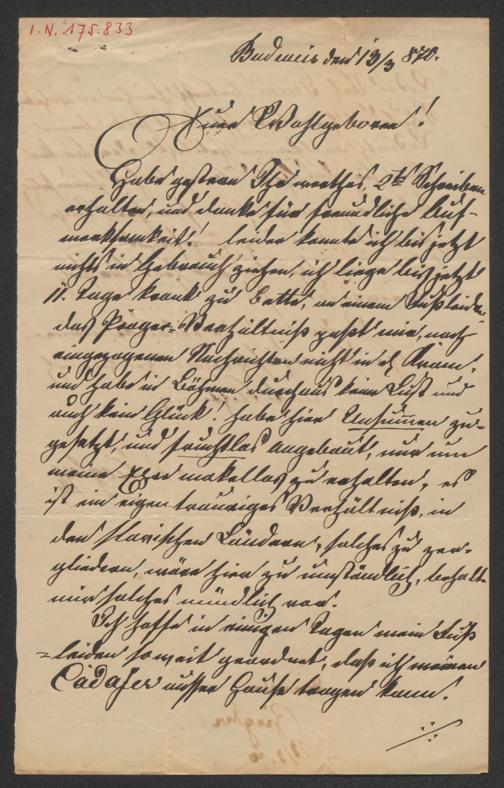 I.N. 175.833
Budweis den 13/3 870.
Euer Wohlgeboren!
Habe gestern Ihr werthes 2tes Schreiben
erhalten, und danke für freundliche Auf-
merksamkeit! leider konnte ich bis jetzt
nichts in Gebrauch ziehen, ich liege bis jetzt
11. Tage krank zu Bette, an einem Fußleiden,
das Prager-Verhältniß paßt mir, nach
eingezogenen Nachrichten nicht in d. Kram,
und habe in Böhmen durchaus kein Lust und
auch kein Glück! habe hier Unsummen zu-
gesetzt, und fruchtlos angebaut, nur um
meine Ehre makellos zu erhalten, es
ist ein eigen trauriges Verhältniß, in
den slavischen Ländern, solches zu zer-
gliedern, wäre hier zu umständlich, behalte
mir solches mündlich vor.
Ich hoffe in einigen Tagen mein Fuß
=leiden so weit geordnet, daß ich meinen
Cadaver ausser Hause tragen kann.